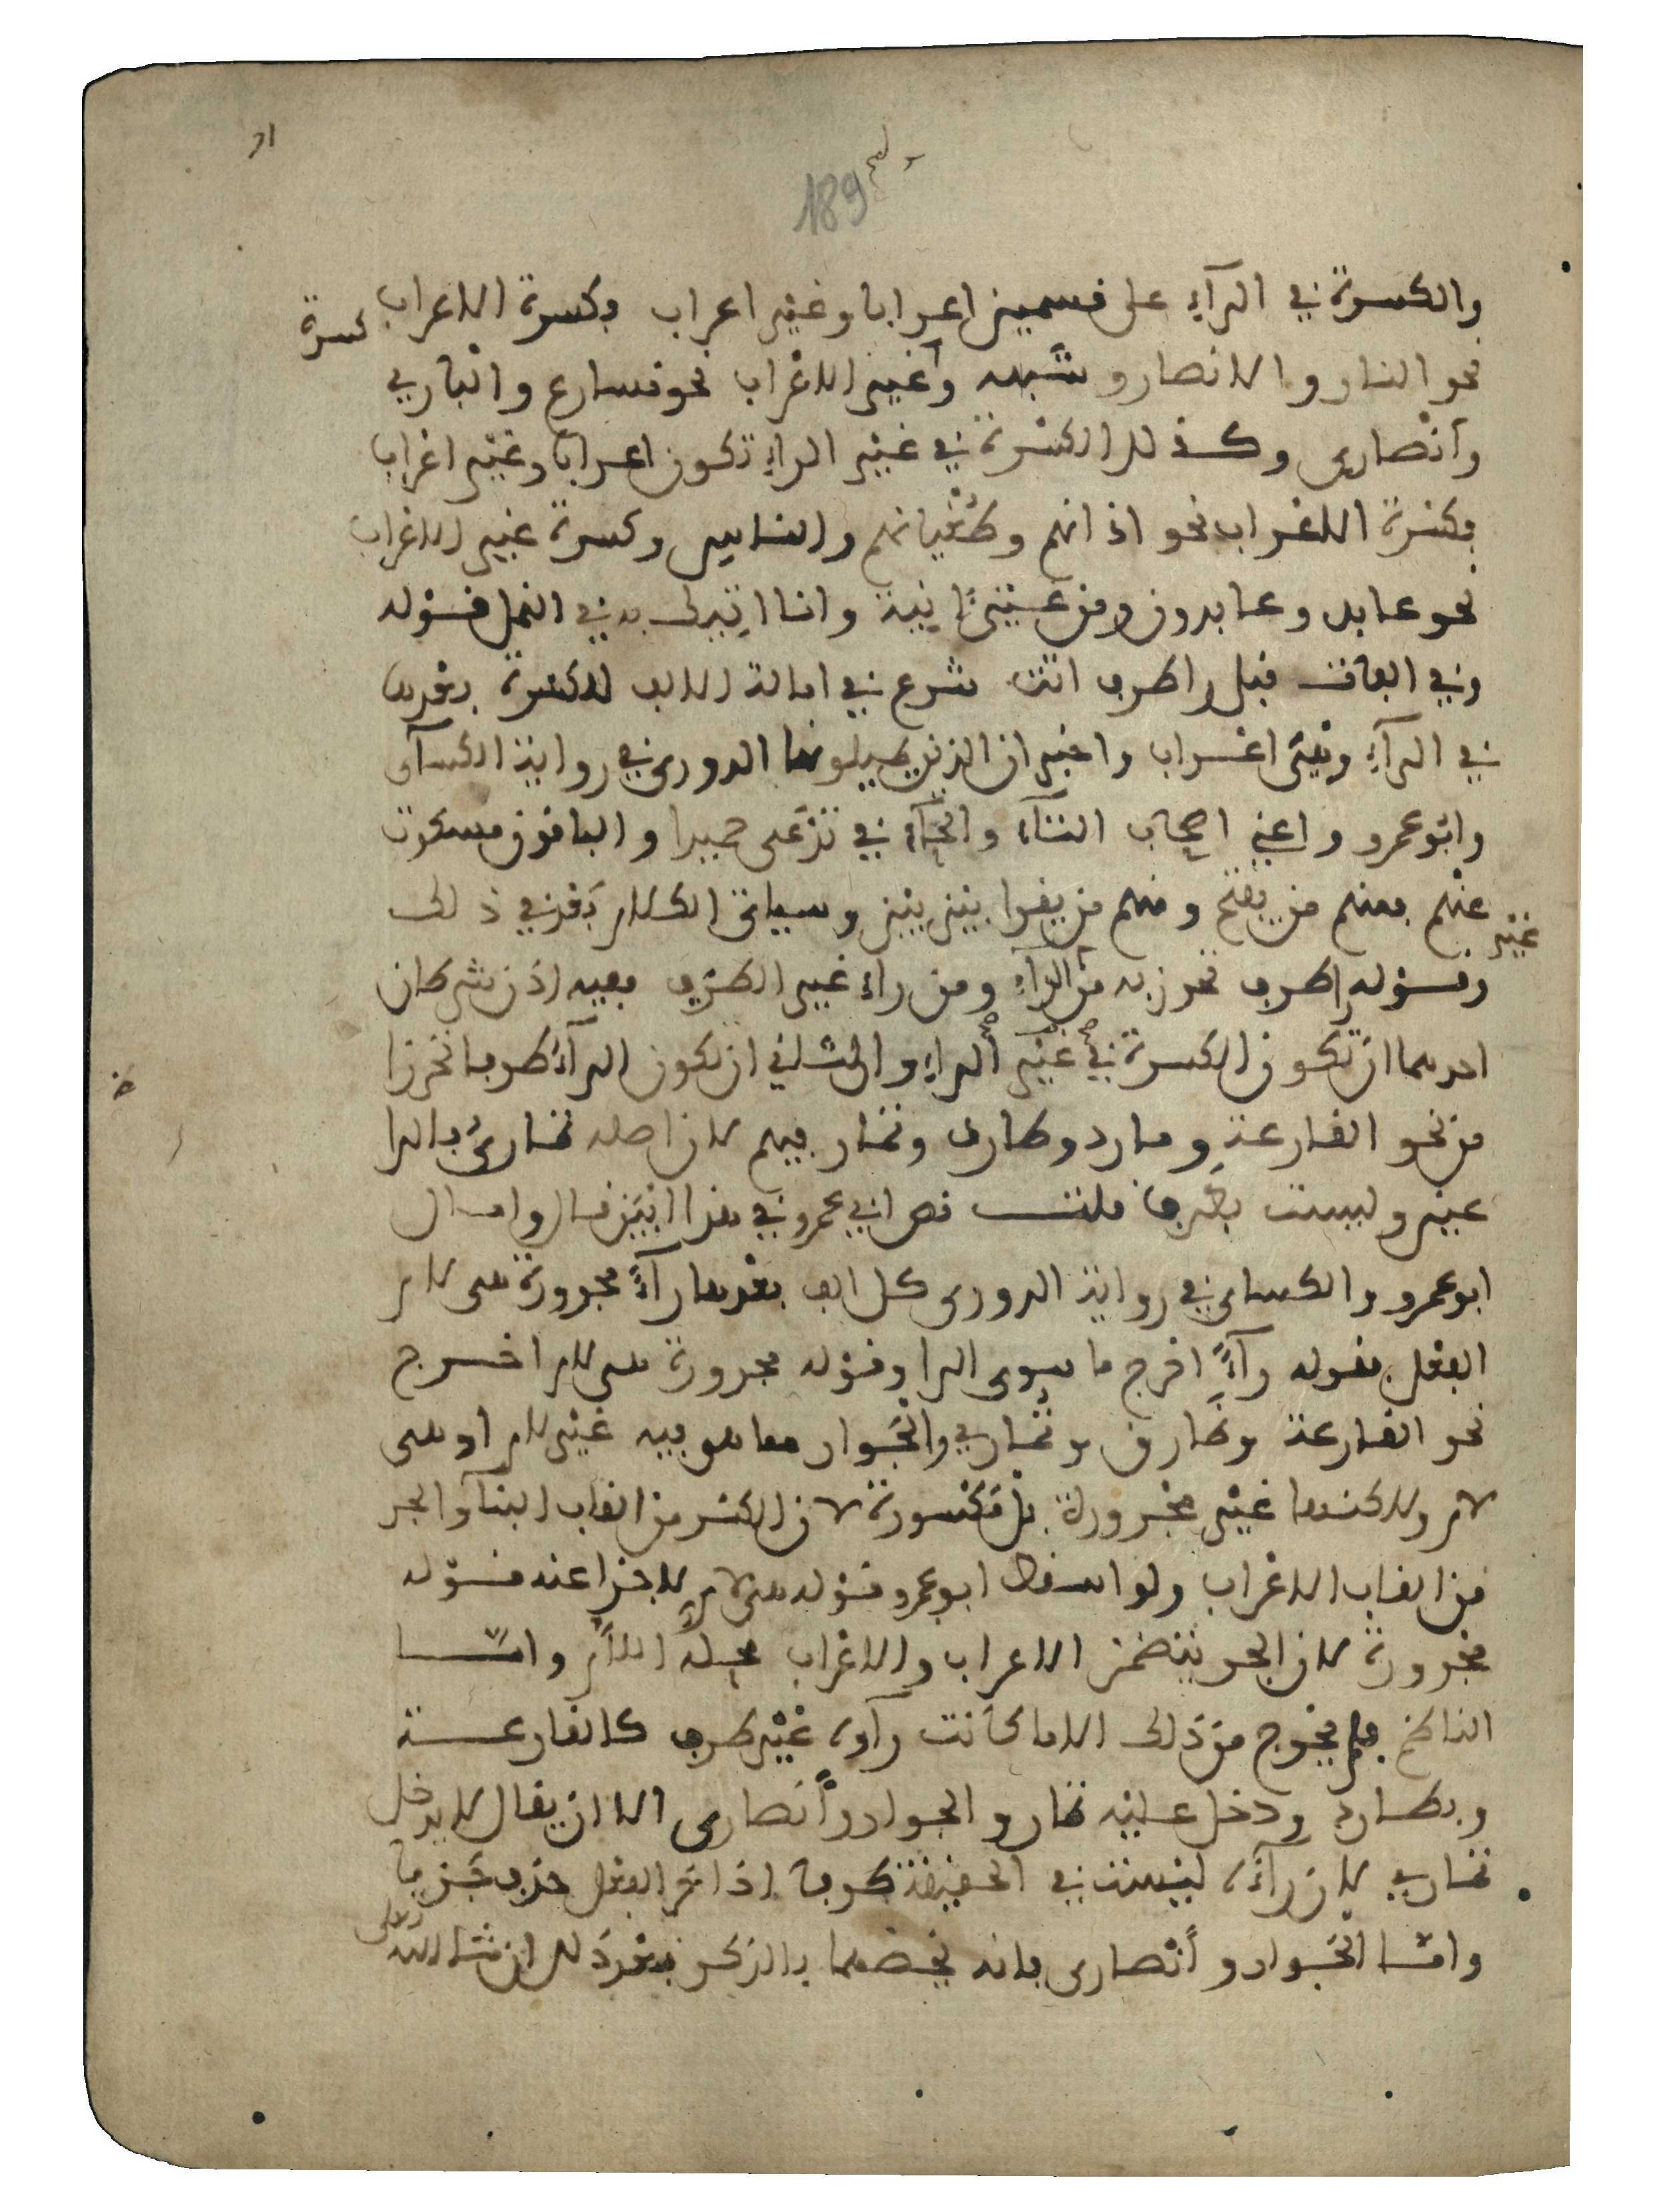 189
والكسرة في الرآء على قسمين اعرابا وغير اعراب فكسرة الاعراب
كسرة
نحو النار والانصار وشبهه وغير الاعراب نحو نسارع والباري
وأنصاري وكذلك الكسرة في غير الراء تكون اعرابا وغير اعراب
فكسرة الاعراب نحو اذانهم وطغيانهم والناس وكسرة غير الاعراب
نحو عابد وعابدون ومن عين انية وانا اتيك به في النمل قوله
وفي الفات قبل را طرف اتت شرع في امالة الالف للكسرة بعدها
في الرآء وهي اعراب واخبر ان الذين يميلونها الدوري في رواية الكسآى
وابو عمرو واعني اصحاب التآء والحآء في تدعى حميدا والباقون مسكوت
عنهم فمنهم من يفتح ومنهم من يقرا بين بين وسياتى الكلام بعد في ذلك
غير
وقوله را طرف تحرز به من الرآء ومن راء غير الطرف ففيه اذن شرطان
احدهما ان تكون الكسرة في غير الراء والثاني ان تكون الرآء طرفا تحرزا
من نحو القارعة ومارد وطارق وتمار فيهم لان اصله تمارى فالرا
عين وليست بطرف قلت نص ابي عمرو في هذا ابين قال وامال
ابو عمرو والكساى في رواية الدورى كل الف بعدها رآء مجرورة هى لام
الفعل فقوله رآء اخرج ما سوى الرا وقوله مجرورة هى لام اخرج
نحو القارعة وطارق وتماري والجوار مما هو فيه غير لام او هى
لام ولاكنها غير مجرورة بل مكسورة لان الكسر من القاب البنآء والجر
من القاب الاعراب ولو اسقط ابو عمرو قوله هى لام لاجزا عنه قوله
مجرورة لان الجر يتضمن الاعراب والاعراب محله اللام وامـا
الناظم فلم يخرج من ذلك الا ما كانت رآؤه غير طرف كالقارعـة
وبطارد ودخل عليه تمار والجوار وأنصارى الا ان يقال لا يدخل
تماري لان رآءه ليست في الحقيقة طرفا اذ اخر الفعل حذف جزما
وامـا الجوار وأنصارى فانه يخصهما بالذكر بعد ذلك ان شا الله
تعلى